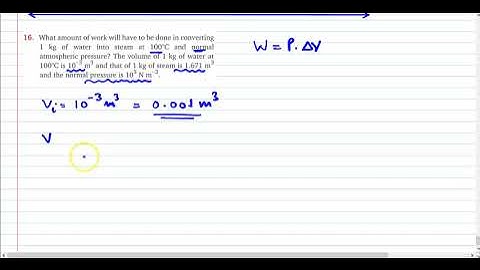 16. What amount of work will have to be done in converting
1 kg of water into steam at 100°C and normal
atmospheric pressure? The volume of 1 kg of water at
100°C is 10⁻³ m³ and that of 1 kg of steam is 1.671 m³
and the normal pressure is 10⁵ N m⁻².
W = P. ΔV
Vi = 10⁻³ m³ = 0.001 m³
V